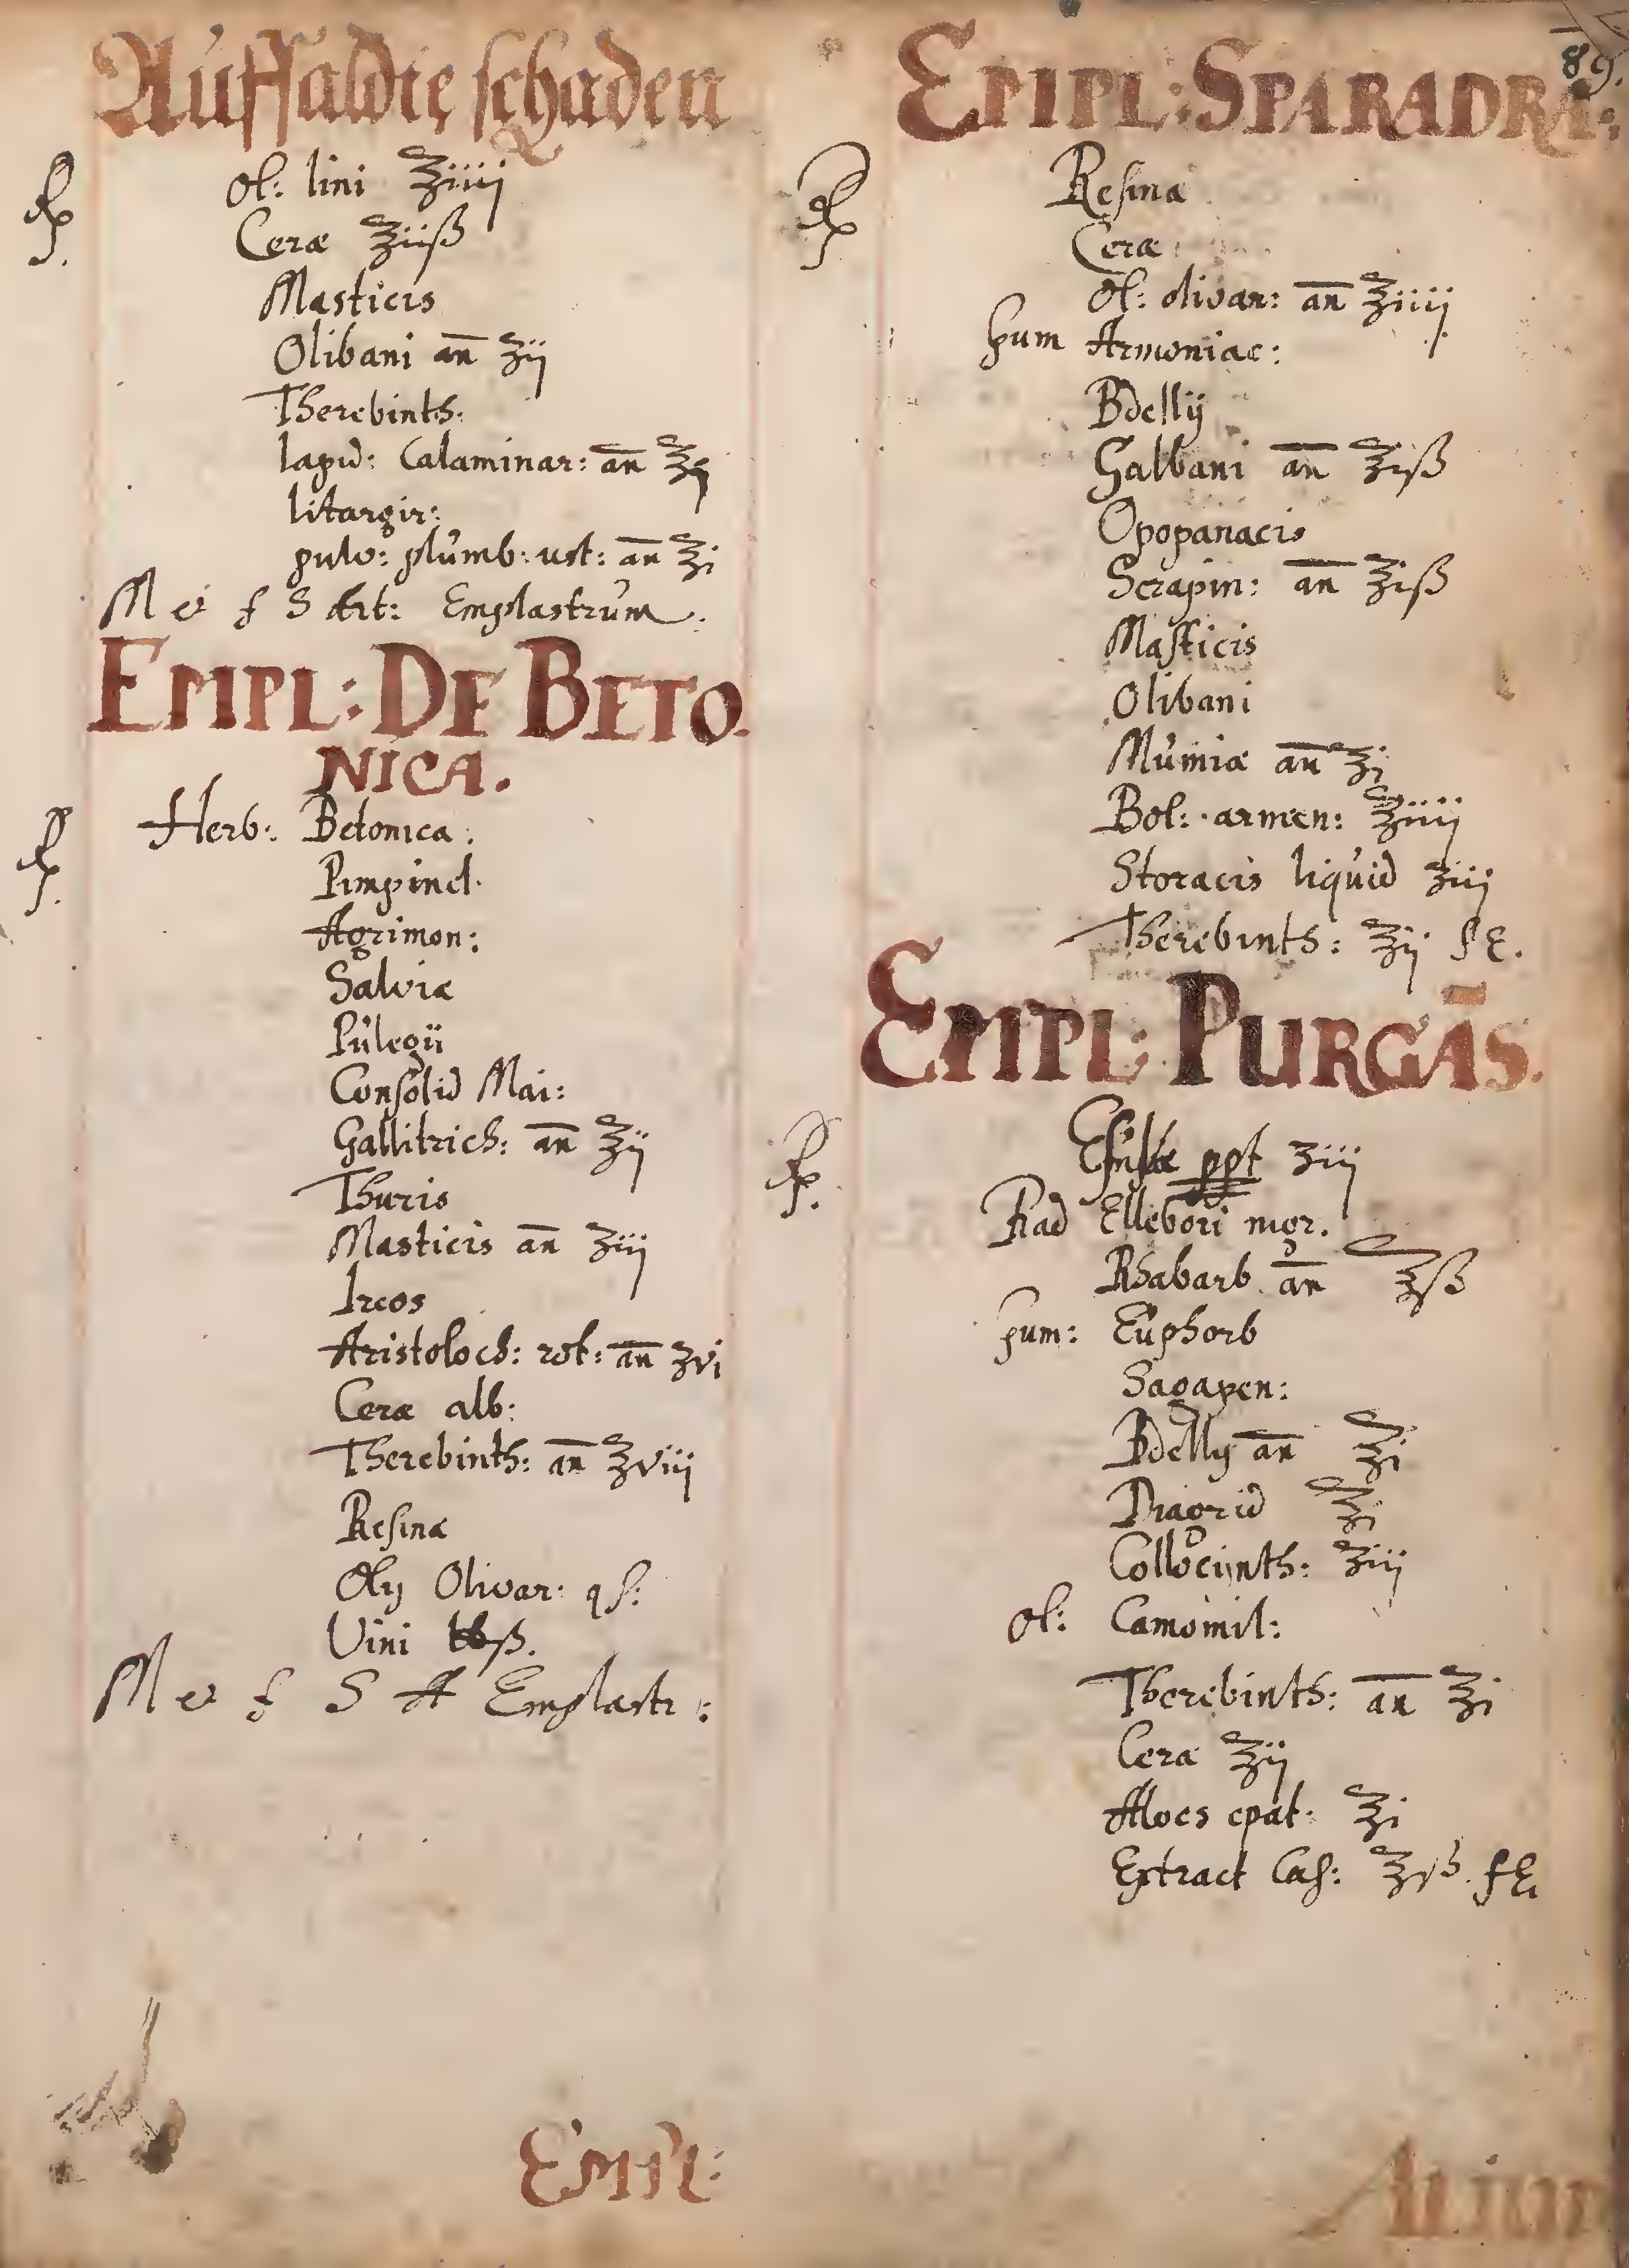 Auff saldte schaden
Rp. Ol: lini ℥iiij
Ceræ ℥iiß
Masticis
Olibani an̄ ʒij
Therebinth:
lapid: Calaminar: an̄ ℥ij
litargir:
pulv: plumb: ust: an̄ ℥i
M et f S Art: Emplastrum.
EMPL: DE BETO.
NICA.
Rp. Herb: Betonica:
Pimpinel.
Agrimon:
Salviæ
Pulegii
Consolid Mai:
Gallitrich: an̄ ℥ij
Thuris
Masticis an̄ ʒiij
Ireos
Aristoloch: rot: an̄ ʒvi
Ceræ alb:
Therebinth: an̄ ℥viij
Resinæ
Olij Olivar: qs:
Vini ℔ß.
M et f S A Emplastr:
Empl:
89.
EMPL: SPARADRA:
Rp Resinæ
Ceræ
Ol: olivar: an̄ ℥iiij
gum Armoniac:
Bdellij
Galbani an̄ ℥iß
Opopanacis
Serapin: an̄ ℥iß
Masticis
Olibani
Mumiæ an̄ ℥i
Bol: armen: ℥iiij
Storacis liquid ʒiij
Therebinth: ℥ij f E.
EMPL: PURGĀS.
Rp. Esulæ ppt ʒiij
Rad Ellebori nigr.
Rhabarb an̄ ℥ß
gum: Euphorb
Sagapen:
Bdellij an̄ ℥i
Diagrid ℥i
Collocinth: ʒiij
Ol: Camomil:
Therebinth: an̄ ℥i
Ceræ ℥ij
Aloes epat: ℥i
Extract Cas: ℥iß. f E
Alium